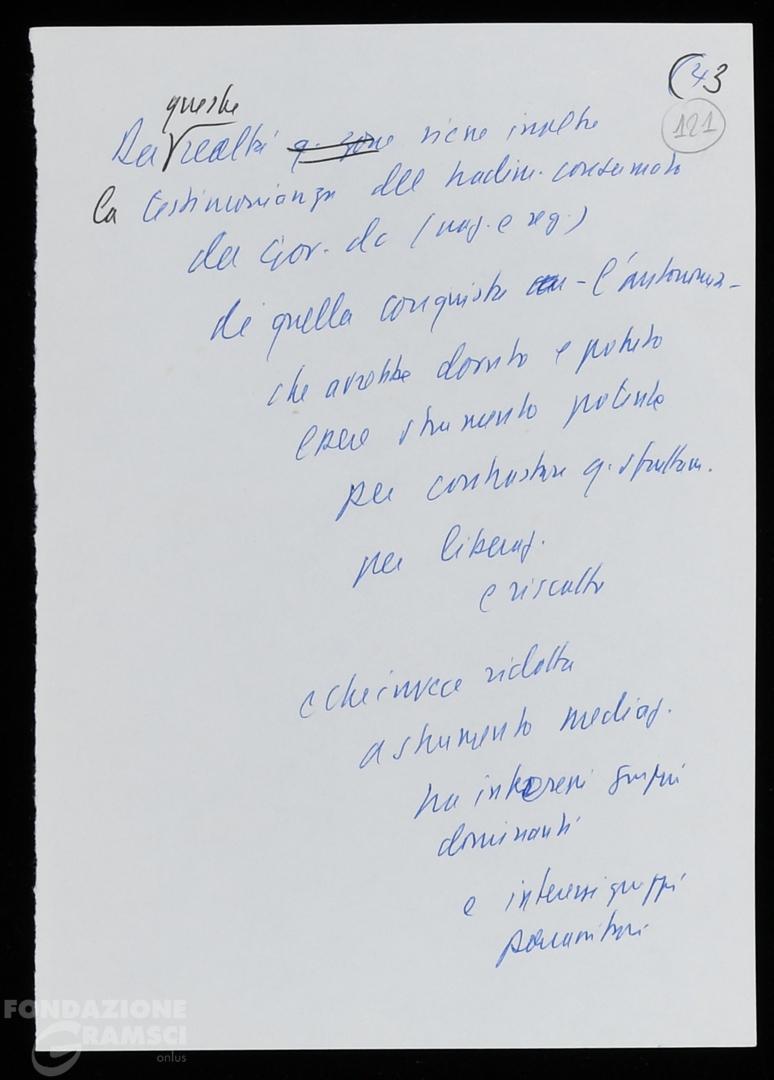 (43
121
queste
Da realtà q. zone viene inoltre
la testimonianza del tradim. consumato
da Gov. dc (naz. e reg.)
di quella conquista - l'autonomia -
che avrebbe dovuto e potuto
essere strumento potente
per contrastare q. sfruttam.
per liberaz.
e riscatto
e che invece ridotta
a strumento mediaz.
tra interessi gruppi
dominanti
e interessi gruppi
parassitari
FONDAZIONE
GRAMSCI
onlus